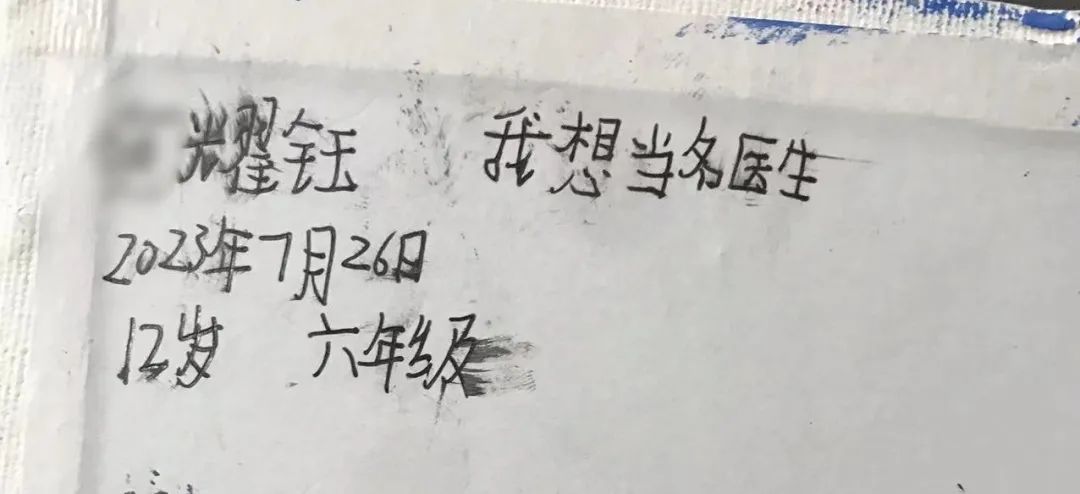 耀钰 我想当名医生
2023年7月26日
12岁 六年级